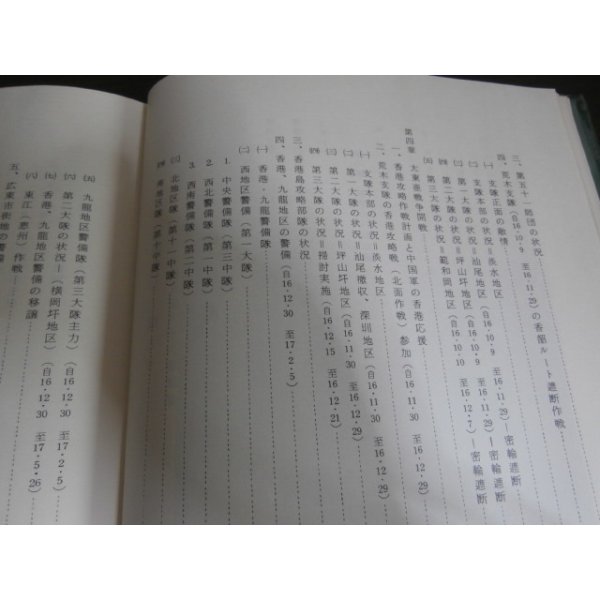 三、第五十一師団の状況
四、荒木支隊(自16・10・9 至16・11・29)の香韶ルート遮断作戦
㈠ 支隊正面の敵情
㈡ 支隊本部の状況=淡水地区(自16・10・9 至16・11・29)―密輸遮断
㈢ 第一大隊の状況=汕尾地区(自16・10・9 至16・11・29)―密輸遮断
㈣ 第二大隊の状況=坪山圩地区(自16・10・9 至16・11・29)―密輸遮断
㈤ 第三大隊の状況=範和岡地区(自16・10・10 至16・12・7)―密輸遮断
第四章 大東亜戦争開戦
一、香港攻略作戦計画と中国軍の香港応援
二、荒木支隊の香港攻略戦(北面作戦)参加(自16・11・30 至16・12・29)
㈠ 支隊本部の状況=淡水地区
㈡ 第一大隊の状況=汕尾撤収、深圳地区(自16・11・30 至16・12・29)
㈢ 第二大隊の状況=坪山圩地区(自16・11・30 至16・12・29)
㈣ 第三大隊の状況=掃討実施(自16・12・15 至16・12・21)
三、香港島攻略部隊の状況
四、香港、九龍地区の警備(自16・12・30 至17・2・5)
㈠ 香港・九龍警備隊
㈡ 西地区警備(第一大隊)
1. 中央警備隊(第三中隊)
2. 西北警備隊(第一中隊)
3. 西南警備隊(第二中隊)
㈢ 北地区隊(第十一中隊)
㈣ 南地区隊(第十中隊)
㈤ 九龍地区警備隊(第三大隊主力)(自16・12・30 至17・2・5)
㈥ 第二大隊の状況―(横岡圩地区)(自16・12・30 至17・2・5)
㈦ 香港、九龍地区警備の移譲
㈧ 東江(恵州)作戦(自16・12・30 至17・5・26)
五、広東市街地の警備